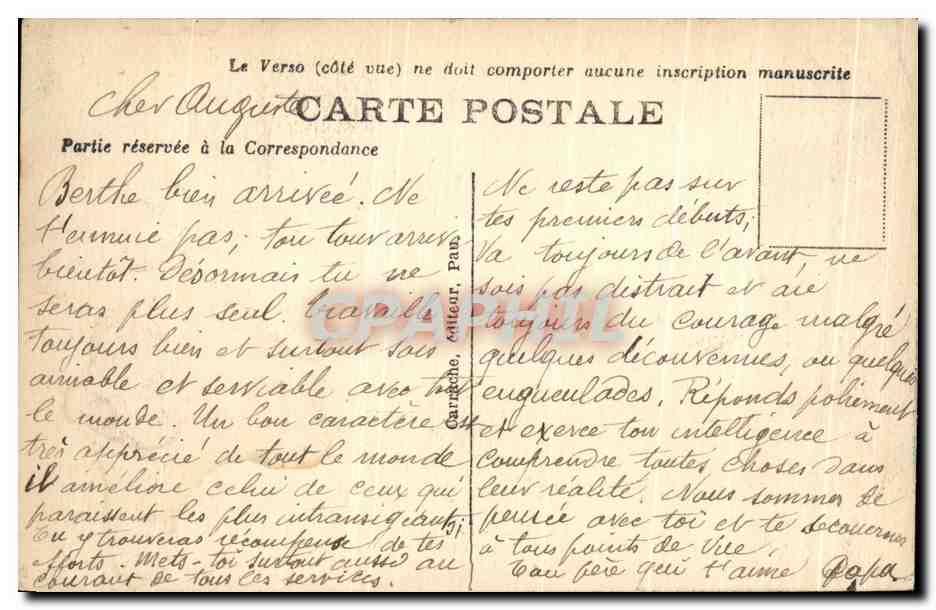 Le Verso (côté vue) ne doit comporter aucune inscription manuscrite
CARTE POSTALE
Partie réservée à la Correspondance
Cher Auguste
Berthe bien arrivée. Ne
t'ennuie pas, ton tour arrive
bientôt. Désormais tu ne
seras plus seul. travaille
toujours bien et surtout sois
aimable et serviable avec tout
le monde. Un bon caractère est
très apprécié de tout le monde
il améliore celui de ceux qui
paraissent les plus intransigeants
Tu y trouveras récompense de tes
efforts. Mets-toi surtout aussi au
courant de tous les services.
Carrache, éditeur, Pau.
Ne reste pas sur
tes premiers débuts,
Va toujours de l'avant, ne
sois pas distrait et aie
toujours du courage malgré
quelques déconvenues, ou quelques
engueulades. Réponds poliment
et exerce ton intelligence à
comprendre toutes choses dans
leur réalité. Nous sommes de
pensée avec toi et te
à tous points de vue.
Ton père qui t'aime Papa
CPAPHIL